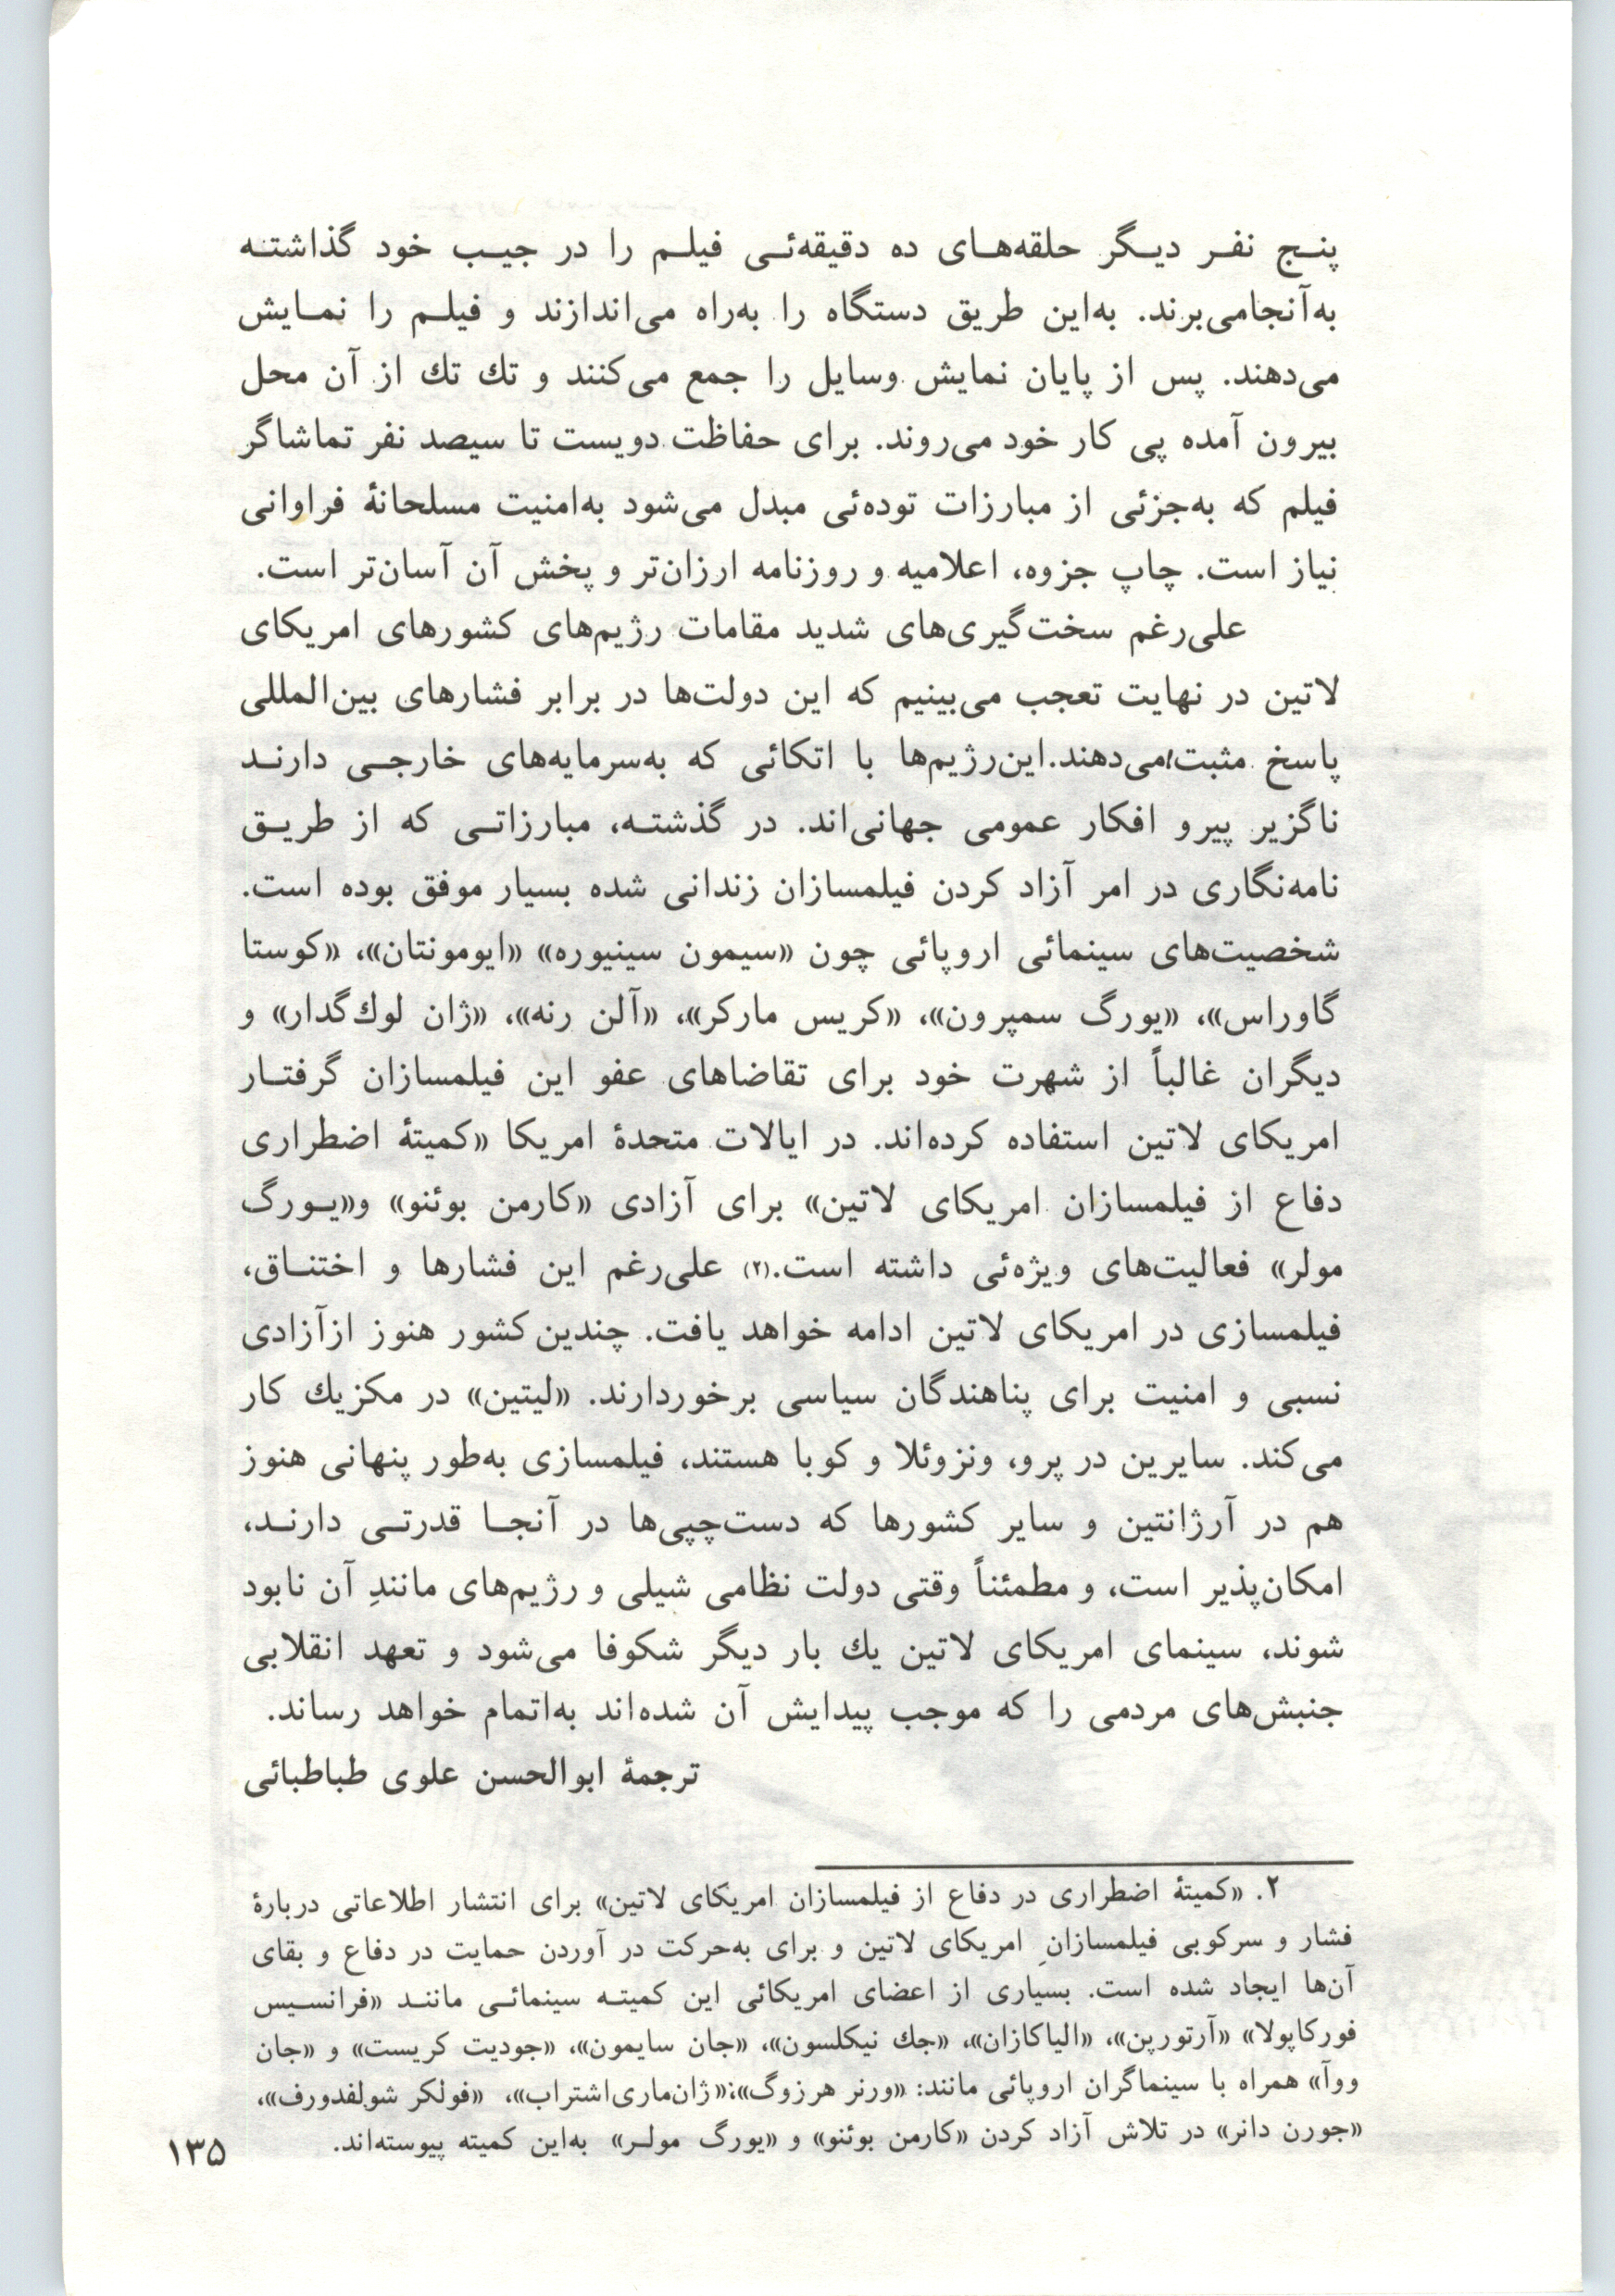 پنج نفر دیگر حلقه‌های ده دقیقه‌ئی فیلم را در جیب خود گذاشته
به‌آنجامی‌برند. به‌این طریق دستگاه را به‌راه می‌اندازند و فیلم را نمایش
می‌دهند. پس از پایان نمایش وسایل را جمع می‌کنند و تك تك از آن محل
بیرون آمده پی کار خود می‌روند. برای حفاظت دویست تا سیصد نفر تماشاگر
فیلم که به‌جزئی از مبارزات توده‌ئی مبدل می‌شود به‌امنیت مسلحانهٔ فراوانی
نیاز است. چاپ جزوه، اعلامیه و روزنامه ارزان‌تر و پخش آن آسان‌تر است.
علی‌رغم سخت‌گیری‌های شدید مقامات رژیم‌های کشورهای امریکای
لاتین در نهایت تعجب می‌بینیم که این دولت‌ها در برابر فشارهای بین‌المللی
پاسخ مثبت می‌دهند. این‌رژیم‌ها با اتکائی که به‌سرمایه‌های خارجی دارند
ناگزیر پیرو افکار عمومی جهانی‌اند. در گذشته، مبارزاتی که از طریق
نامه‌نگاری در امر آزاد کردن فیلمسازان زندانی شده بسیار موفق بوده است.
شخصیت‌های سینمائی اروپائی چون «سیمون سینیوره» «ایومونتان»، «کوستا
گاوراس»، «یورگ سمپرون»، «کریس مارکر»، «آلن رنه»، «ژان لوك‌گدار» و
دیگران غالباً از شهرت خود برای تقاضاهای عفو این فیلمسازان گرفتار
امریکای لاتین استفاده کرده‌اند. در ایالات متحدهٔ امریکا «کمیتهٔ اضطراری
دفاع از فیلمسازان امریکای لاتین» برای آزادی «کارمن بوئنو» و«یورگ
مولر» فعالیت‌های ویژه‌ئی داشته است.(۲) علی‌رغم این فشارها و اختناق،
فیلمسازی در امریکای لاتین ادامه خواهد یافت. چندین کشور هنوز ازآزادی
نسبی و امنیت برای پناهندگان سیاسی برخوردارند. «لیتین» در مکزیك کار
می‌کند. سایرین در پرو، ونزوئلا و کوبا هستند، فیلمسازی به‌طور پنهانی هنوز
هم در آرژانتین و سایر کشورها که دست‌چپی‌ها در آنجا قدرتی دارند،
امکان‌پذیر است، و مطمئناً وقتی دولت نظامی شیلی و رژیم‌های مانندِ آن نابود
شوند، سینمای امریکای لاتین یك بار دیگر شکوفا می‌شود و تعهد انقلابی
جنبش‌های مردمی را که موجب پیدایش آن شده‌اند به‌اتمام خواهد رساند.
ترجمهٔ ابوالحسن علوی طباطبائی
۲. «کمیتهٔ اضطراری در دفاع از فیلمسازان امریکای لاتین» برای انتشار اطلاعاتی دربارهٔ
فشار و سرکوبی فیلمسازانِ امریکای لاتین و برای به‌حرکت در آوردن حمایت در دفاع و بقای
آن‌ها ایجاد شده است. بسیاری از اعضای امریکائی این کمیته سینمائی مانند «فرانسیس
فورکاپولا» «آرتورپن»، «الیاکازان»، «جك نیکلسون»، «جان سایمون»، «جودیت کریست» و «جان
ووآ» همراه با سینماگران اروپائی مانند: «ورنر هرزوگ»؛«ژان‌ماری‌اشتراب»، «فولکر شولفدورف»،
«جورن دانر» در تلاش آزاد کردن «کارمن بوئنو» و «یورگ مولر» به‌این کمیته پیوسته‌اند.
۱۳۵